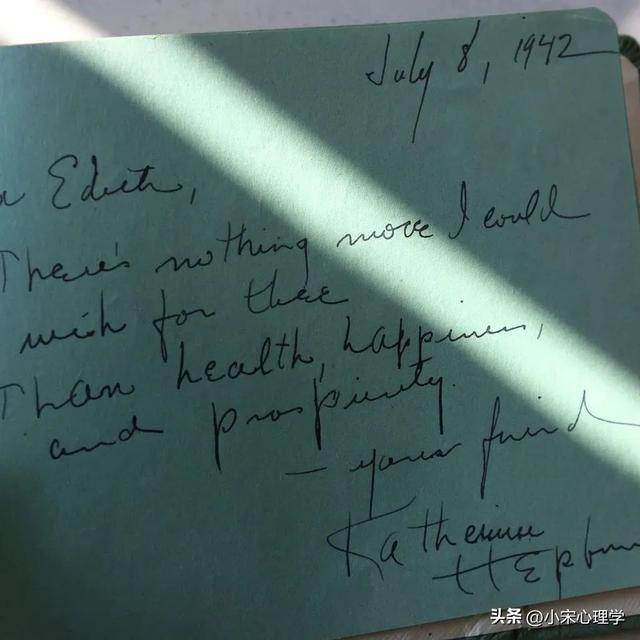 July 8, 1942
Edith,
There's nothing more I could
wish for thee
Than health, happiness,
and prosperity.
— your friend
Katherine
Hepburn
头条 @小宋心理学